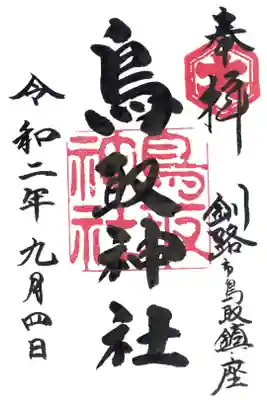 奉拝
釧路市鳥取鎮座
鳥取神社
鳥取神社
令和二年九月四日